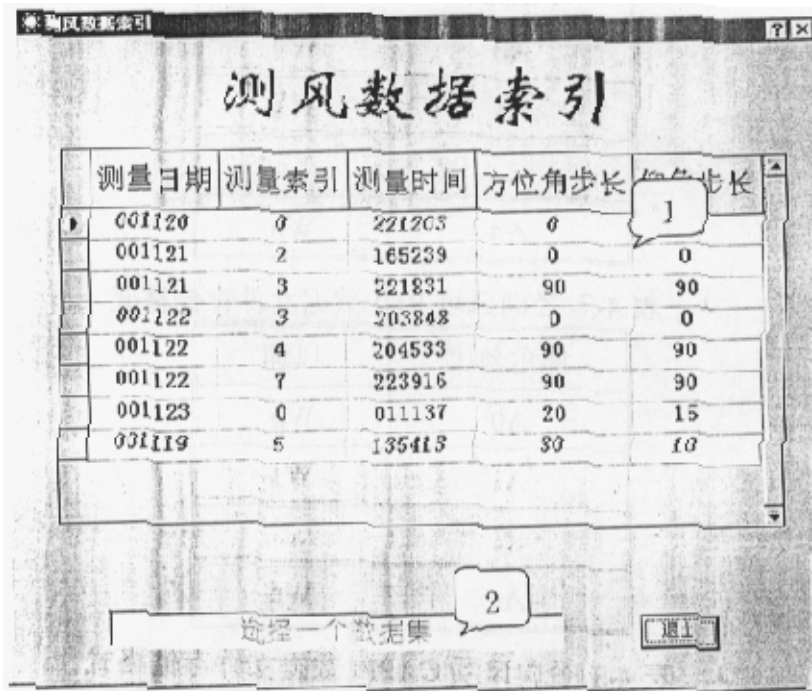 测风数据索引
测风数据索引
测量日期 测量索引 测量时间 方位角步长 步长
001120 0 221203 0
1
001121 2 165239 0 0
001121 3 221831 90 90
001122 3 203848 0 0
001122 4 204533 90 90
001122 7 223916 90 90
001123 0 011137 20 15
031119 5 135413 30 10
2
选择一个数据集